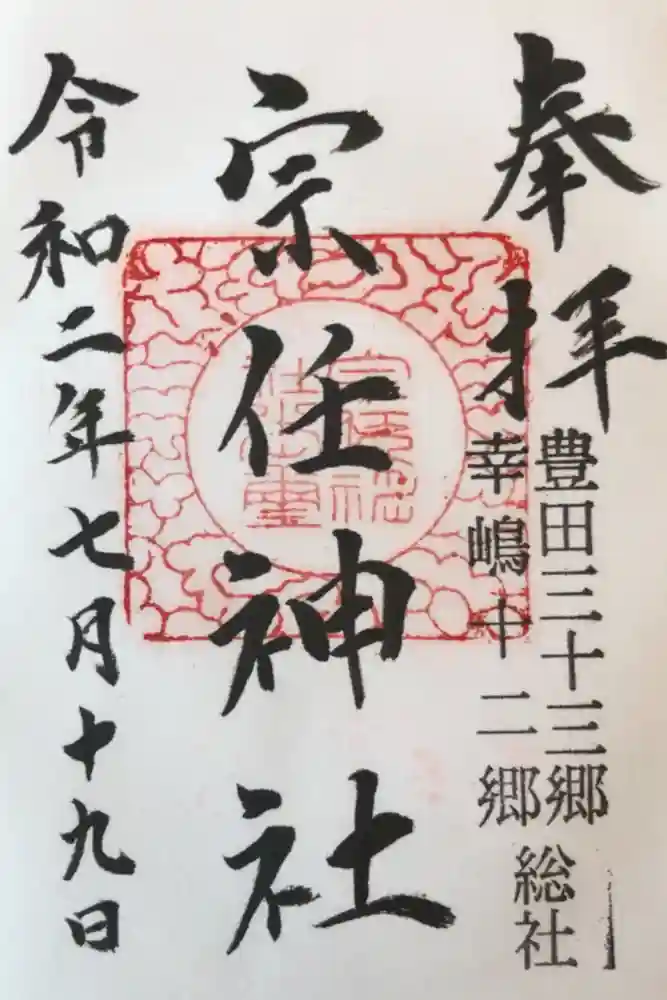 奉拝
豊田三十三郷
幸嶋十二郷
総社
宗任神社
令和二年七月十九日